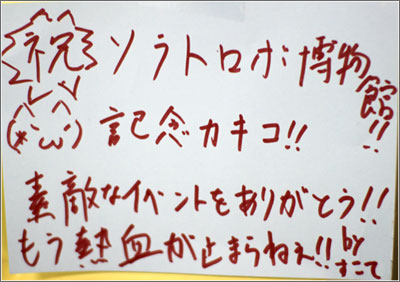 祝 ソラトロボ博物館!!
(*´ω`) 記念カキコ!!
素敵なイベントをありがとう!!
もう熱血が止まらねぇ!! by すこて